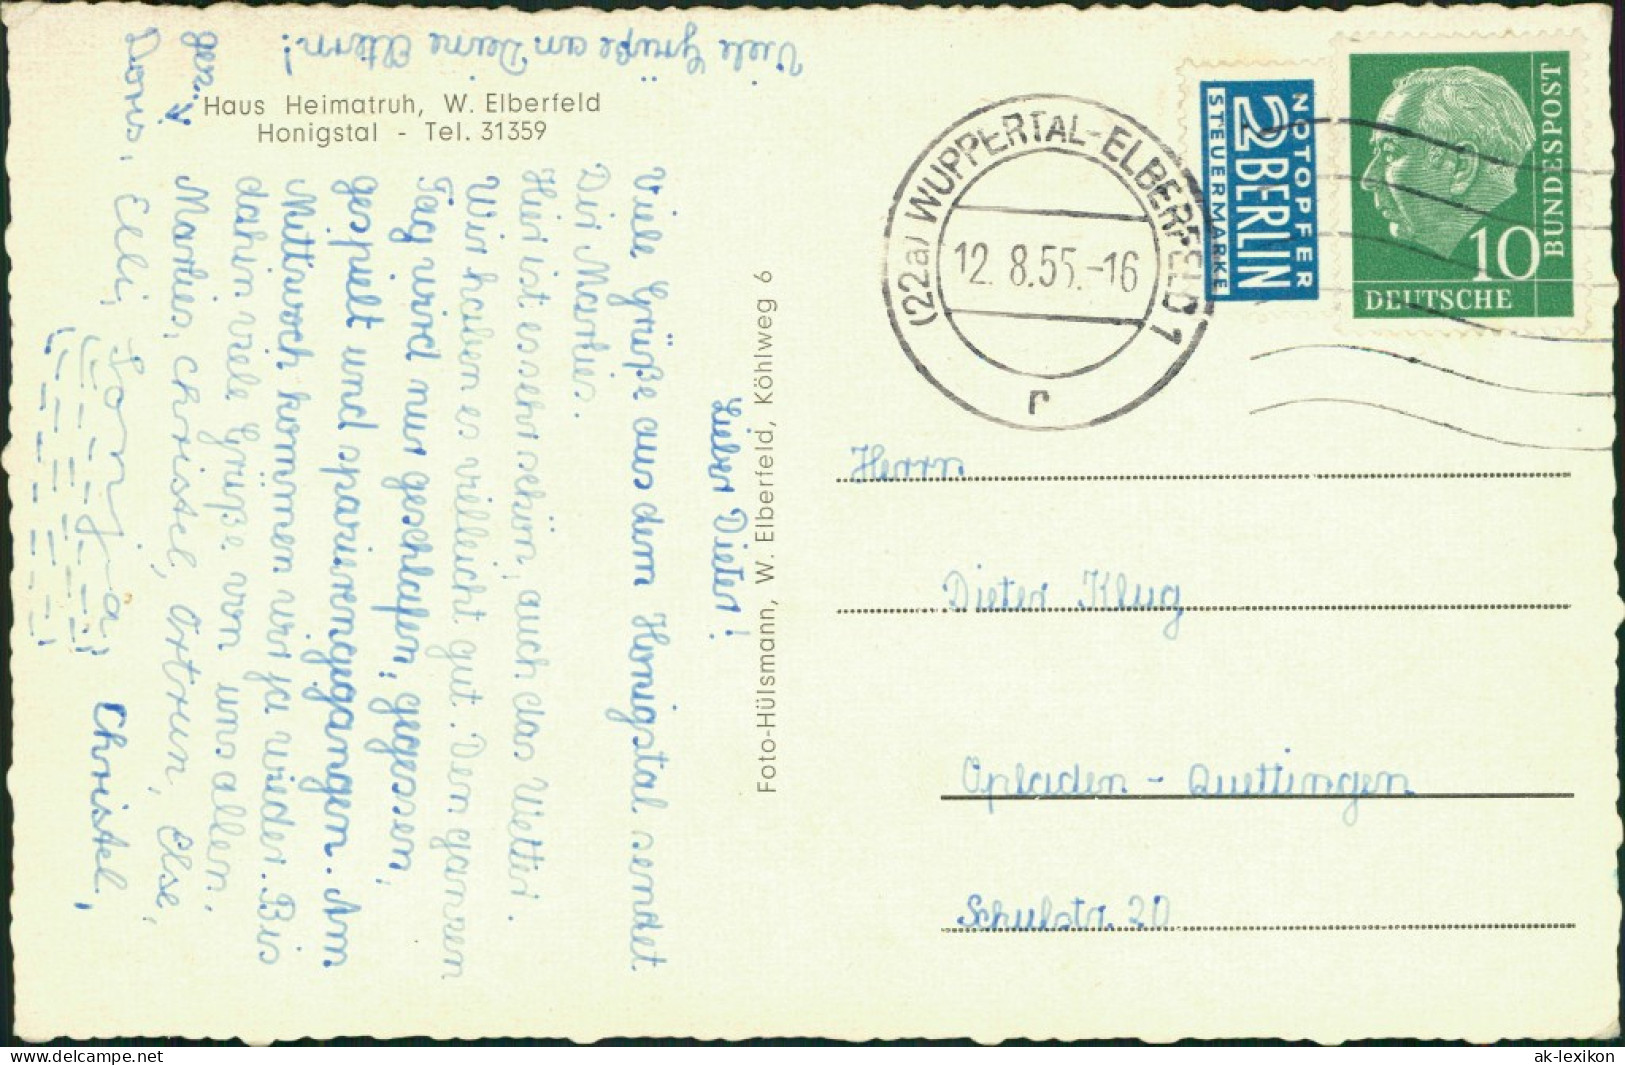 Haus Heimatruh, W. Elberfeld
Honigstal - Tel. 31359
Lieber Dieter!
Viele Grüße aus dem Honigstal sendet
Dir Marlies.
Hier ist es sehr schön, auch das Wetter.
Wir haben es villeicht gut. Den ganzen
Tag wird nur geschlafen, gegessen,
gespielt und spazierengegangen. Am
Mittwoch kommen wir ja wieder. Bis
dahin viele Grüße von uns allen.
Marlies, Christel, Ortrun, Else,
Doris, Elli, Sonja Christel,
Viele Grüße an Deine Eltern!
Foto-Hülsmann, W. Elberfeld, Köhlweg 6
(22a) WUPPERTAL-ELBERFELD 1
12.8.55.-16
r
NOTOPFER
2 BERLIN
STEUERMARKE
BUNDESPOST
10
DEUTSCHE
Herrn
Dieter Klug
Opladen - Quettingen
Schulstr. 20
ak-lexikon